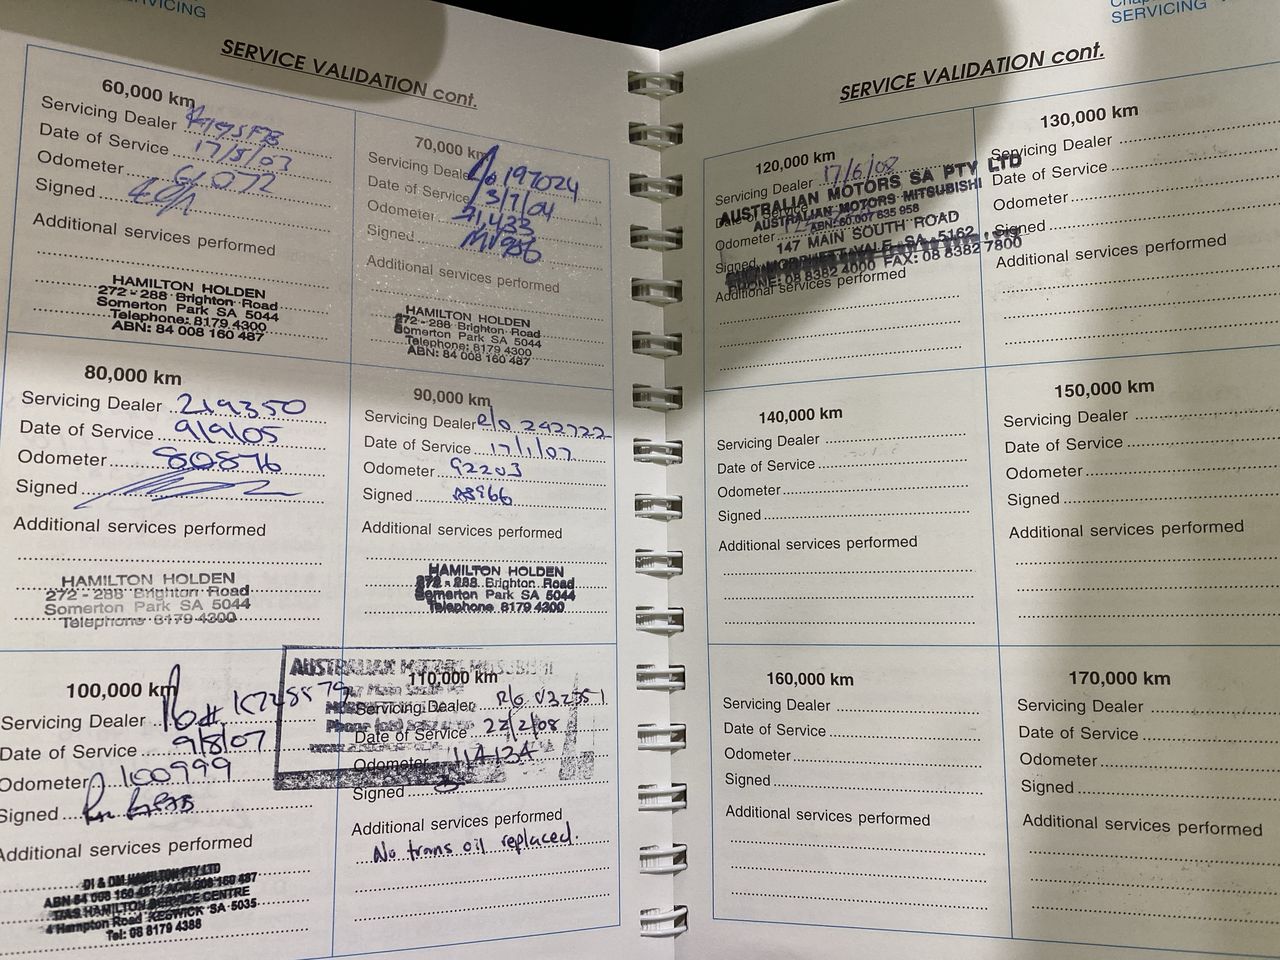 SERVICING
SERVICE VALIDATION cont.
60,000 km
Servicing Dealer
Date of Service 17/5/03
Odometer 61072
Signed
Additional services performed
HAMILTON HOLDEN
272 - 288 Brighton Road
Somerton Park SA 5044
Telephone: 8179 4300
ABN: 84 008 160 487
70,000 km
Servicing Dealer R/o 197024
Date of Service 13/7/04
Odometer 71,433
Signed
Additional services performed
HAMILTON HOLDEN
272 - 288 Brighton Road
Somerton Park SA 5044
Telephone: 8179 4300
ABN: 84 008 160 487
80,000 km
Servicing Dealer 219350
Date of Service 9/9/05
Odometer 80876
Signed
Additional services performed
HAMILTON HOLDEN
272 - 288 Brighton Road
Somerton Park SA 5044
Telephone 8179 4300
90,000 km
Servicing Dealer R/o 242722
Date of Service 17/1/07
Odometer 92203
Signed
Additional services performed
HAMILTON HOLDEN
272 - 288 Brighton Road
Somerton Park SA 5044
Telephone 8179 4300
100,000 km
Servicing Dealer Ro#. K728879
Date of Service 9/8/07
Odometer 100999
Signed
Additional services performed
ABN 84 008 160 487 / ACN 008 160 487
HAMILTON SERVICE CENTRE
4 Hampton Road KESWICK SA 5035
Tel: 08 8179 4388
AUSTRALIAN
110,000 km
Servicing Dealer R/o V32351
Date of Service 22/2/08
Odometer 114134
Signed
Additional services performed
No trans oil replaced.
SERVICING
SERVICE VALIDATION cont.
120,000 km
Servicing Dealer 17/6/08
Date of Service
Odometer
Signed
Additional services performed
AUSTRALIAN MOTORS SA PTY LTD
AUSTRALIAN MOTORS MITSUBISHI
ABN: 60 007 635 958
147 MAIN SOUTH ROAD
VALE, SA, 5162
PHONE: 08 8382 4000 FAX: 08 8382 7800
130,000 km
Servicing Dealer
Date of Service
Odometer
Signed
Additional services performed
140,000 km
Servicing Dealer
Date of Service
Odometer
Signed
Additional services performed
150,000 km
Servicing Dealer
Date of Service
Odometer
Signed
Additional services performed
160,000 km
Servicing Dealer
Date of Service
Odometer
Signed
Additional services performed
170,000 km
Servicing Dealer
Date of Service
Odometer
Signed
Additional services performed